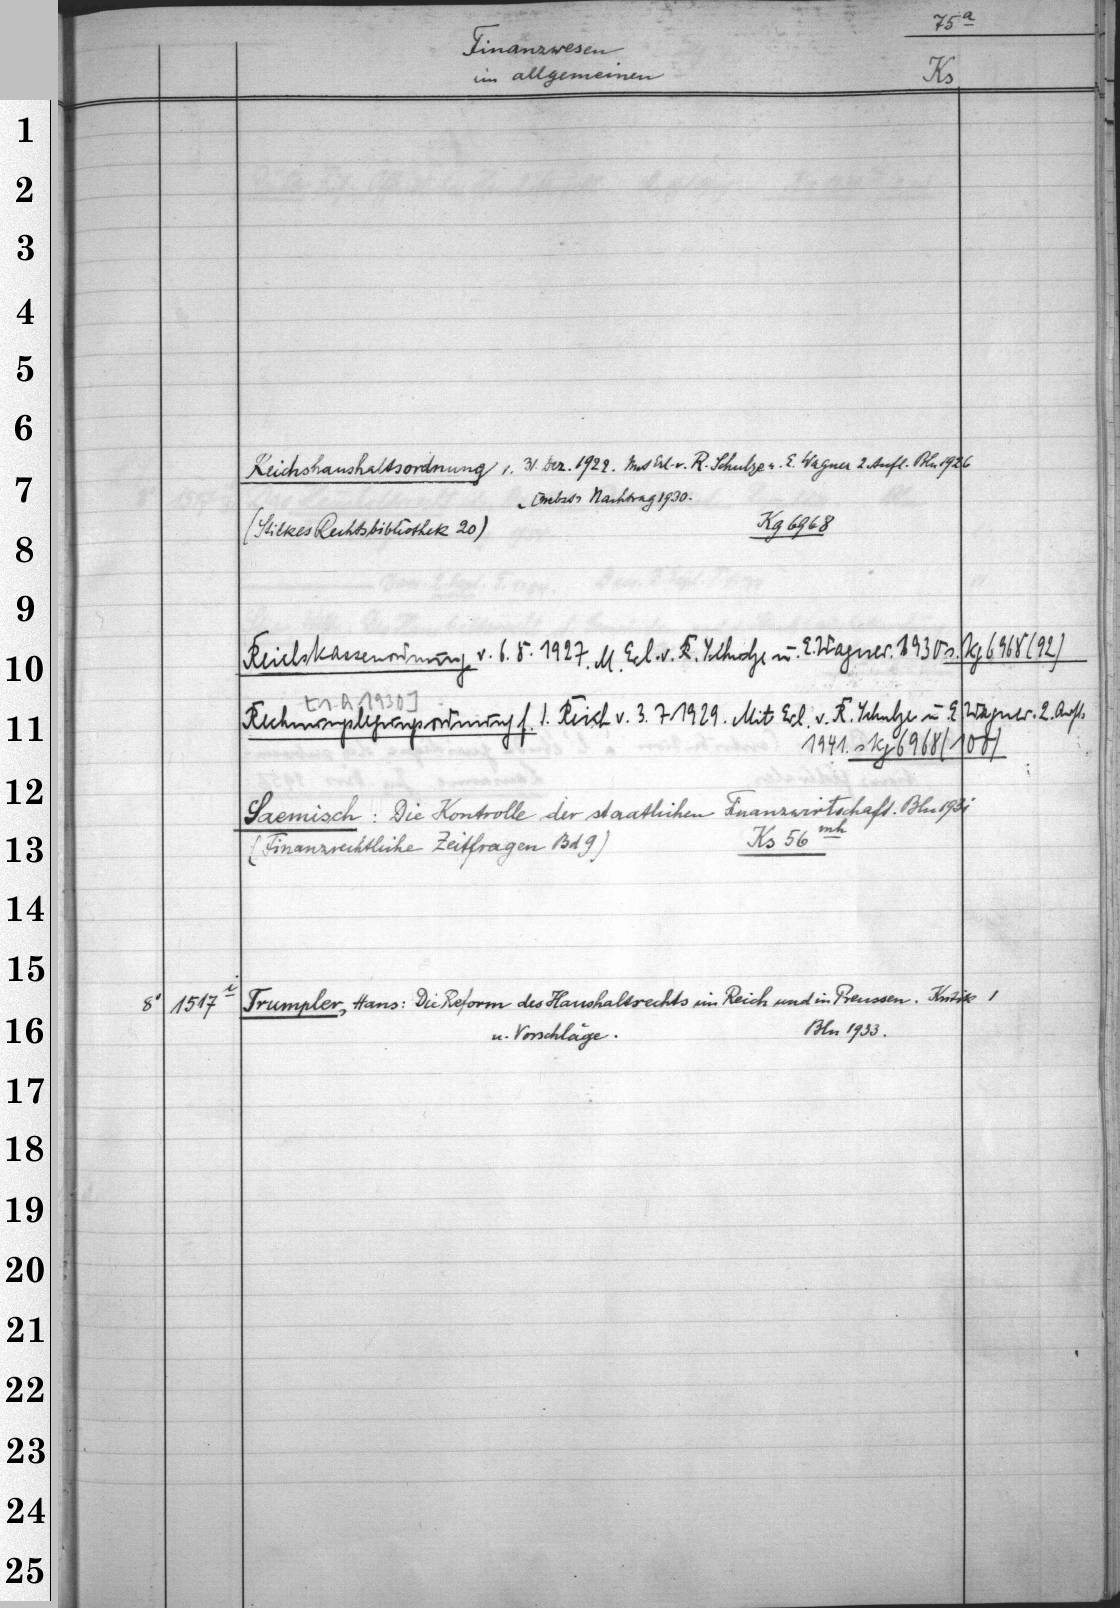 75a
Finanzwesen
im allgemeinen
Ks
1
2
3
4
5
6
7
8
9
10
11
12
13
14
15
16
17
18
19
20
21
22
23
24
25
Reichshaushaltsordnung v. 31. Dez. 1922. Mit Erl. v. R. Schulze u. E. Wagner 2. Aufl. Bln 1926
Nebst Nachtrag 1930.
(Stilkes Rechtsbibliothek 20) Kg 6968
Reichskassenordnung v. 6. 8. 1927. M. Erl. v. R. Schulze u. E. Wagner. 1930 s. Kg 6968 (92)
[1. A 1930]
Rechnungslegungsordnung f. d. Reich v. 3. 7 1929. Mit Erl. v. R. Schulze u E Wagner. 2. Aufl.
1941. s Kg 6968 (108)
Saemisch: Die Kontrolle der staatlichen Finanzwirtschaft. Bln 1931
(Finanzrechtliche Zeitfragen Bd 9) Ks 56 mh
8° 1517 i Trumpler, Hans: Die Reform des Haushaltsrechts im Reich und in Preussen. Kritik 1
u. Vorschläge. Bln 1933.